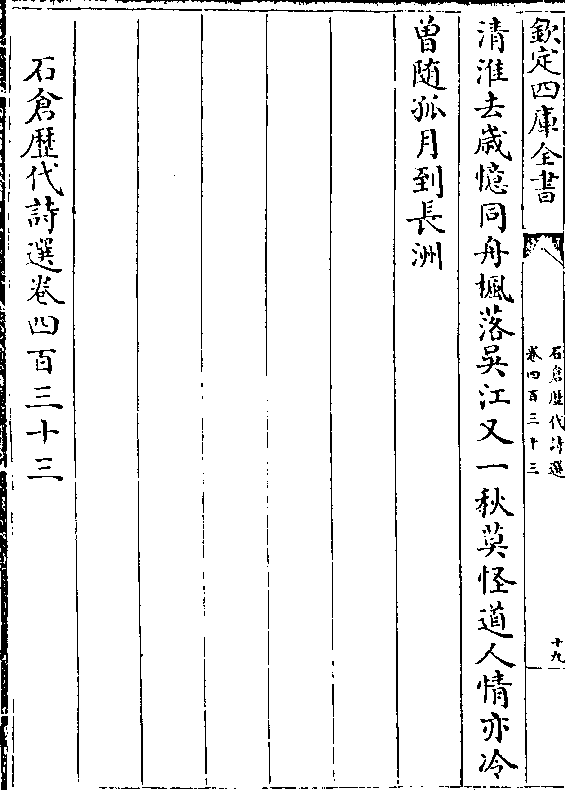 欽定四庫全書
石倉歴代詩選
卷四百三十三
十九
清淮去歳憶同舟楓落吳江又一秋莫怪道人情亦冷
曾随孤月到長洲
石倉歴代詩選卷四百三十三